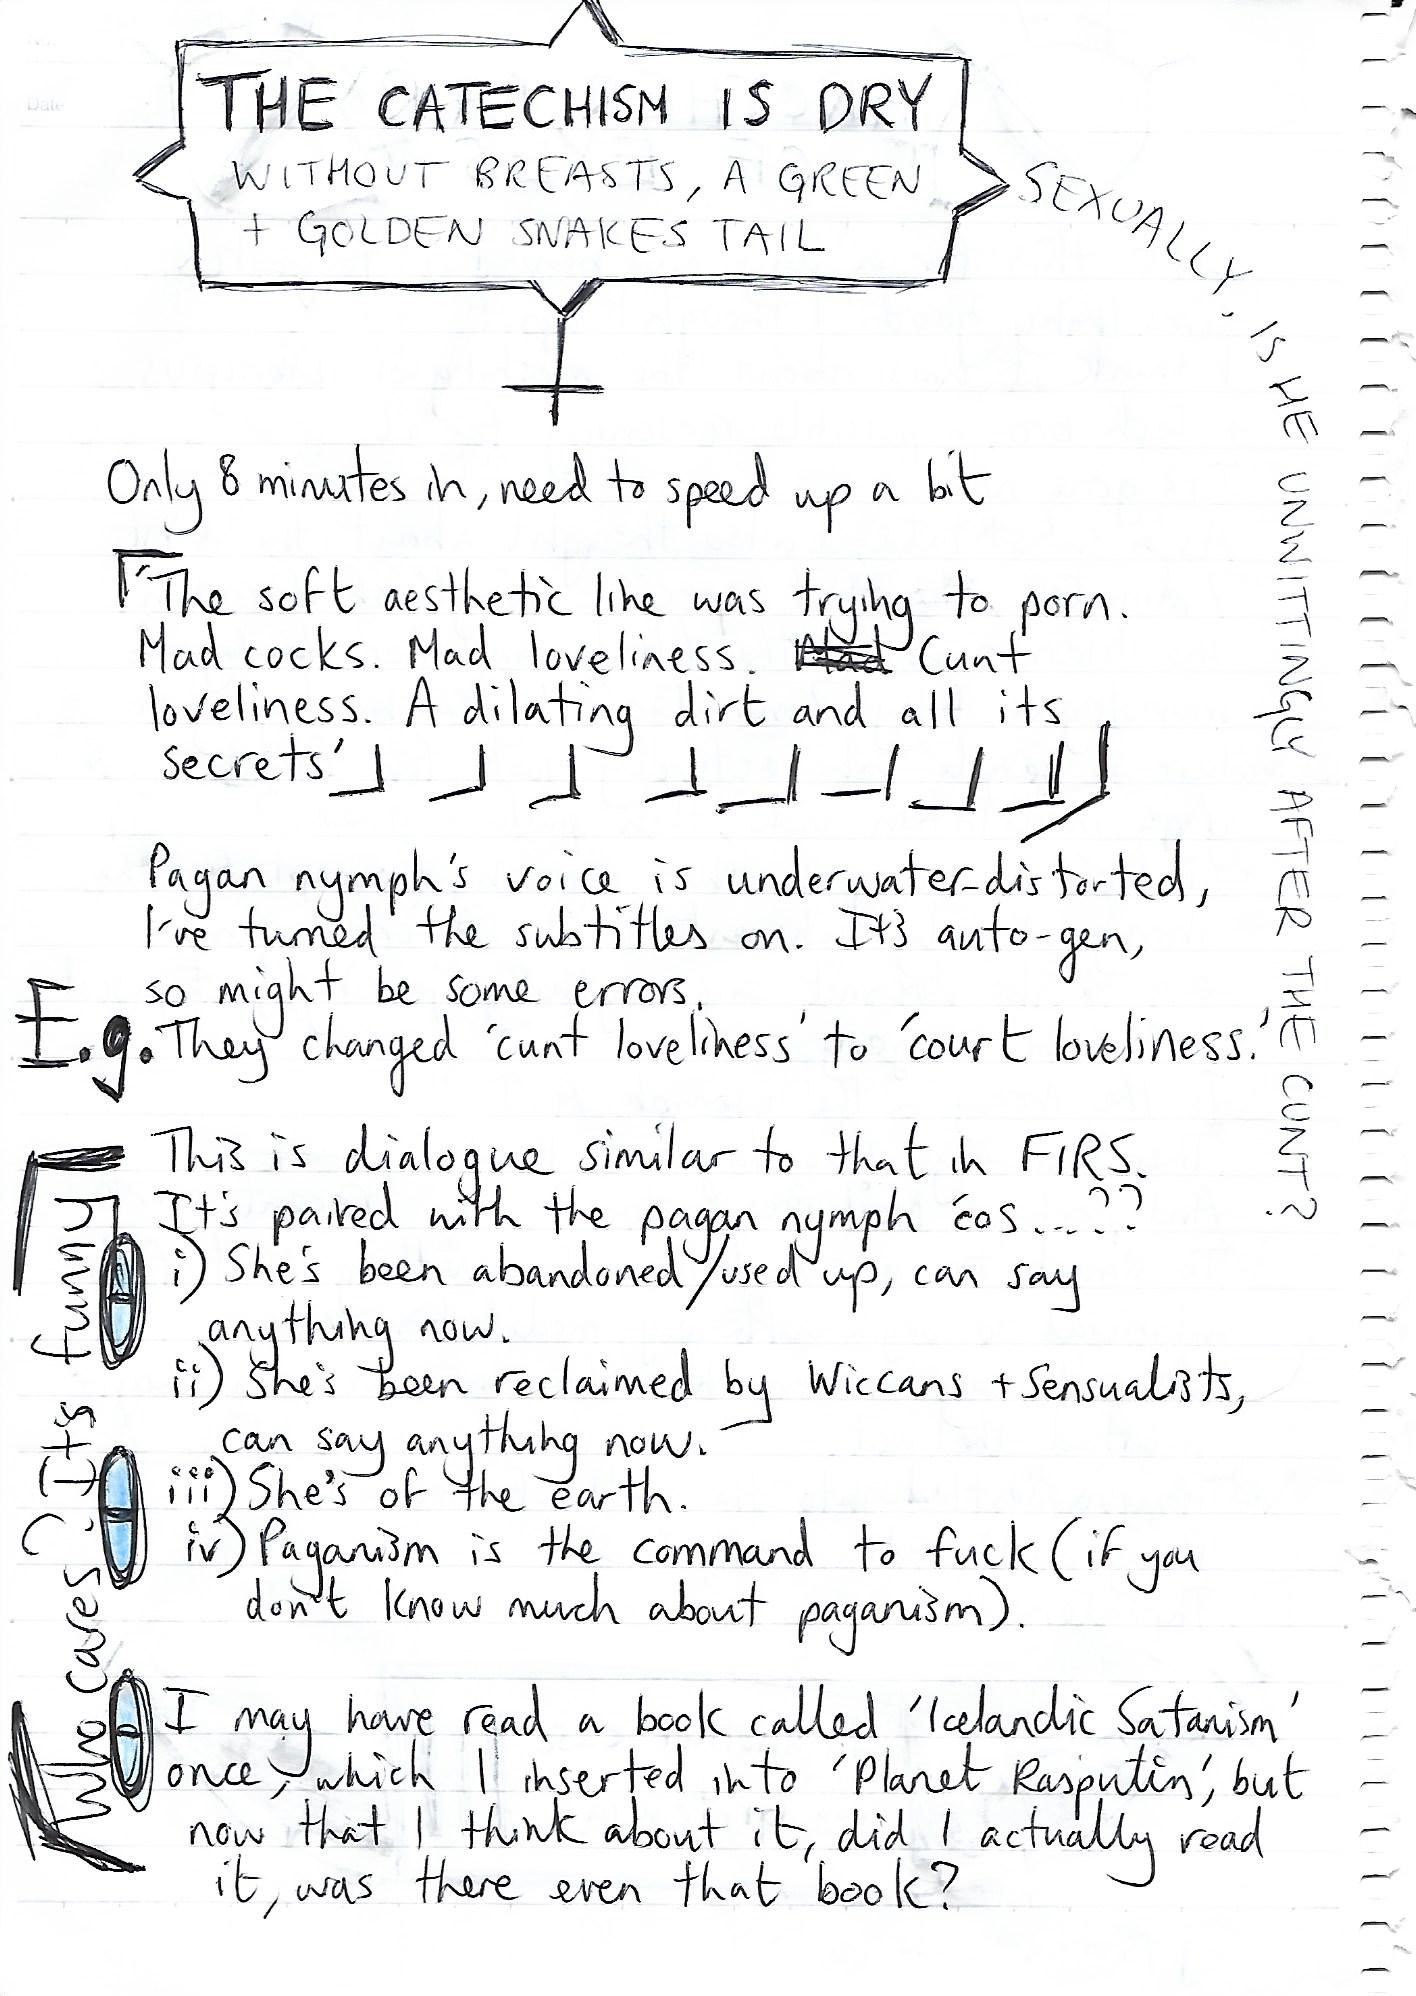 THE CATECHISM IS DRY
WITHOUT BREASTS, A GREEN
+ GOLDEN SNAKES TAIL
SEXUALLY, IS HE UNWITTINGLY AFTER THE CUNT?
Only 8 minutes in, need to speed up a bit
'The soft aesthetic line was trying to porn.
Mad cocks. Mad loveliness. Mad Cunt
loveliness. A dilating dirt and all its
secrets'
Pagan nymph's voice is underwater-distorted,
I've turned the subtitles on. It's auto-gen,
so might be some errors.
E.g. They changed 'cunt loveliness' to 'court loveliness.'
This is dialogue similar to that in FIRS.
It's paired with the pagan nymph 'cos....??
i) She's been abandoned/used up, can say
anything now.
ii) She's been reclaimed by Wiccans + Sensualists,
can say anything now.
iii) She's of the earth.
iv) Paganism is the command to fuck (if you
don't know much about paganism).
Who cares? It's funny
I may have read a book called 'Icelandic Satanism'
once, which I inserted into 'Planet Rasputin', but
now that I think about it, did I actually read
it, was there even that book?